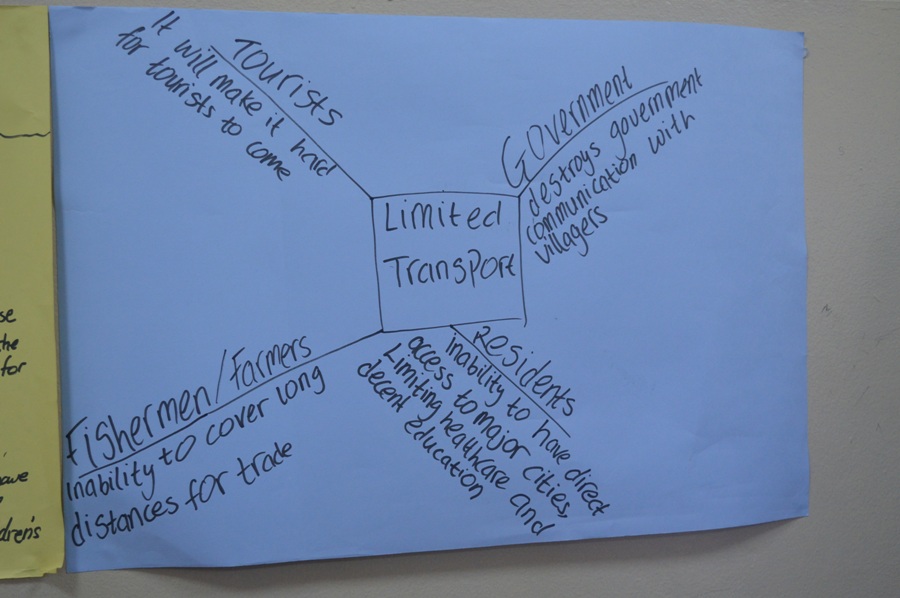 Limited
Transport
Tourists
It will make it hard
for tourists to
come
Government
destroys government
communication with
villagers
Fishermen/Farmers
inability to cover long
distances for trade
Residents
inability to have direct
access to major cities,
Limiting healthcare and
decent education
se
the
for
dren's